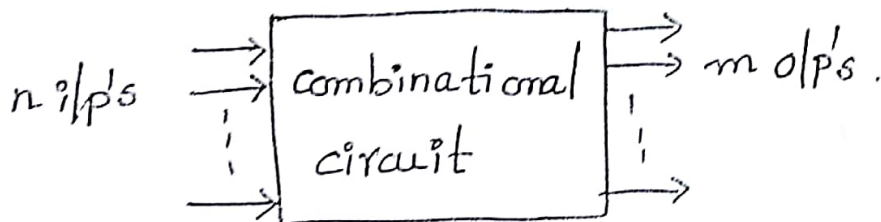 n i/p's
combinational
circuit
m o/p's.